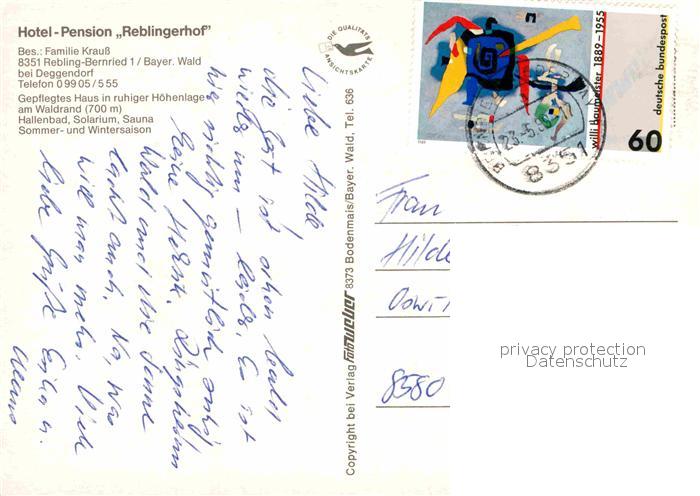 Hotel-Pension „Reblingerhof"
Bes.: Familie Krauß
8351 Rebling-Bernried 1/Bayer. Wald
bei Deggendorf
Telefon 0 99 05 / 5 55
Gepflegtes Haus in ruhiger Höhenlage
am Waldrand (700 m)
Hallenbad, Solarium, Sauna
Sommer- und Wintersaison
DIE QUALITÄTS
ANSICHTSKARTE
Liebe Hilde,
die Zeit ist schon bald
wieder um – leider. Es ist
hier richtig gemütlich und
keine Hektik. Ringsherum
Wald und die Sonne
lacht auch. Na, was
will man mehr. Viele
liebe Grüße
Copyright bei Verlag foto weber 8373 Bodenmais/Bayer. Wald, Tel. 636
willi baumeister 1889-1955
deutsche bundespost
60
8351
Frau
Hilde
8580
privacy protection
Datenschutz